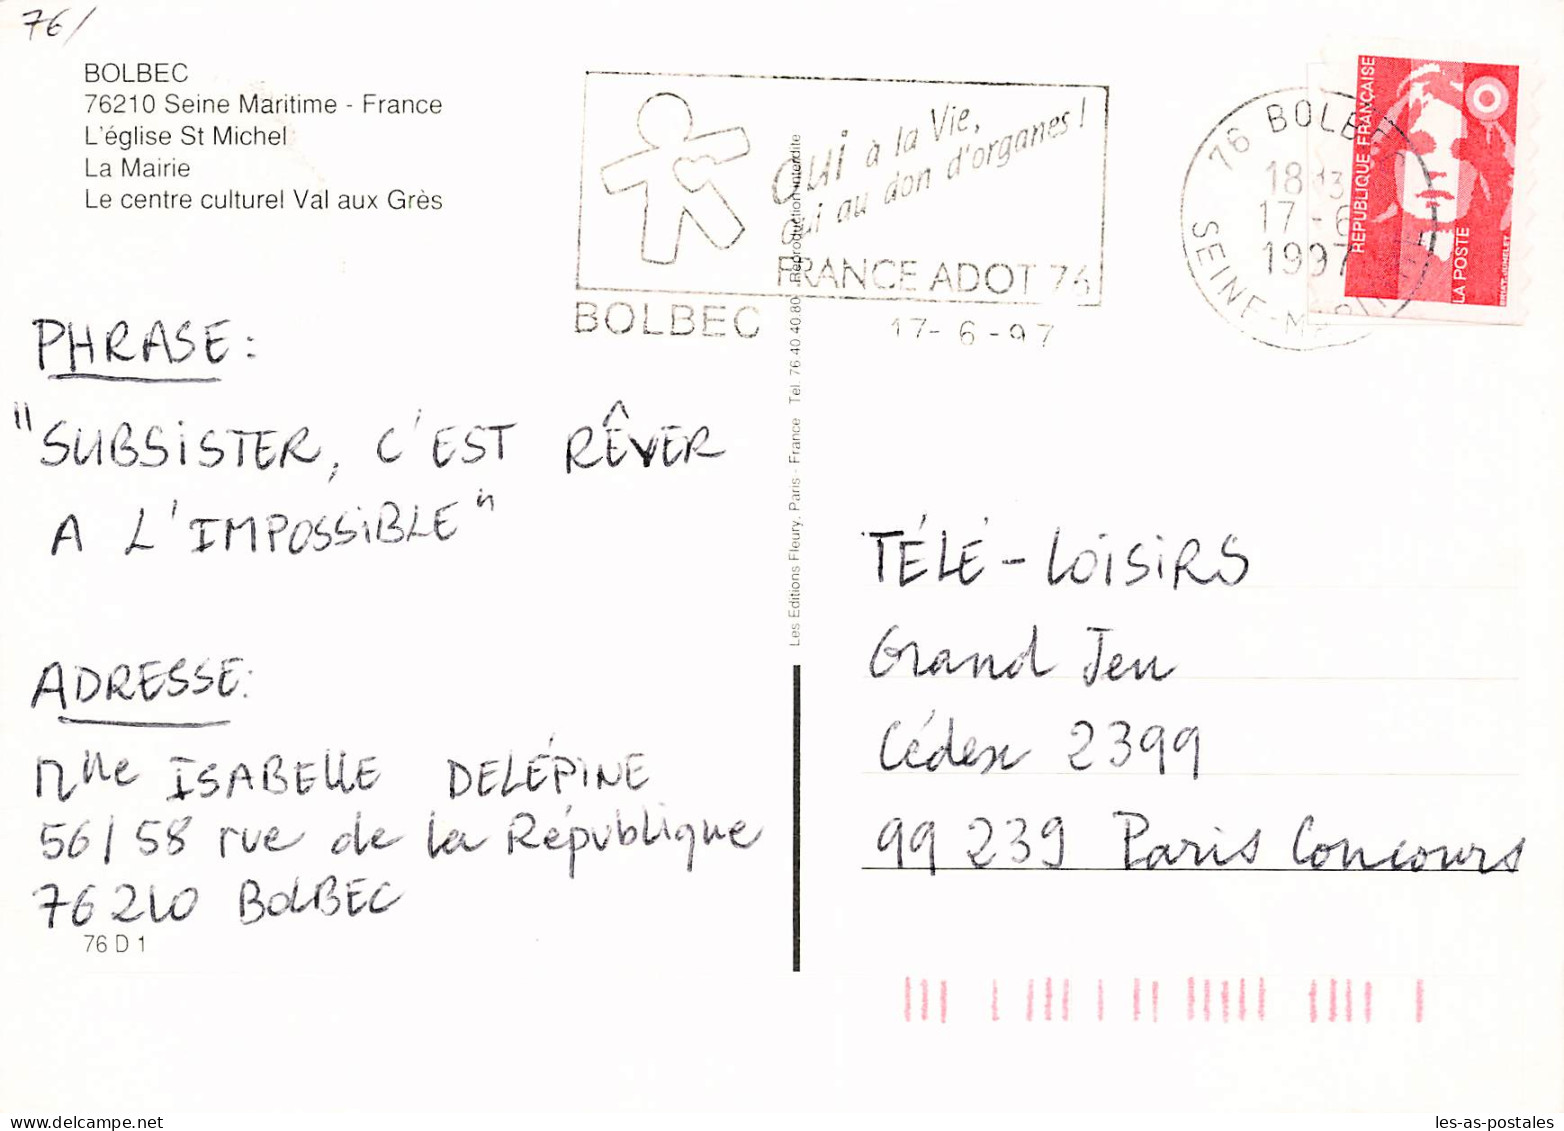 76/
BOLBEC
76210 Seine Maritime - France
L'église St Michel
La Mairie
Le centre culturel Val aux Grès
oui à la Vie,
oui au don d'organes !
FRANCE ADOT 76
BOLBEC 17-6-97
76 BOLBEC
18 H3
17-6
1997
SEINE-MARITIME
REPUBLIQUE FRANÇAISE
LA POSTE
PHRASE :
"SUBSISTER, C'EST RÊVER
A L'IMPOSSIBLE"
ADRESSE:
Mlle ISABELLE DELÉPINE
56/58 rue de la République
76210 BOLBEC
76 D 1
Les Editions Fleury, Paris - France Tel. 76 40 40 80 Reproduction interdite
TÉLÉ-LOISIRS
Grand Jeu
Cédex 2399
99 239 Paris Concours
les-as-postales